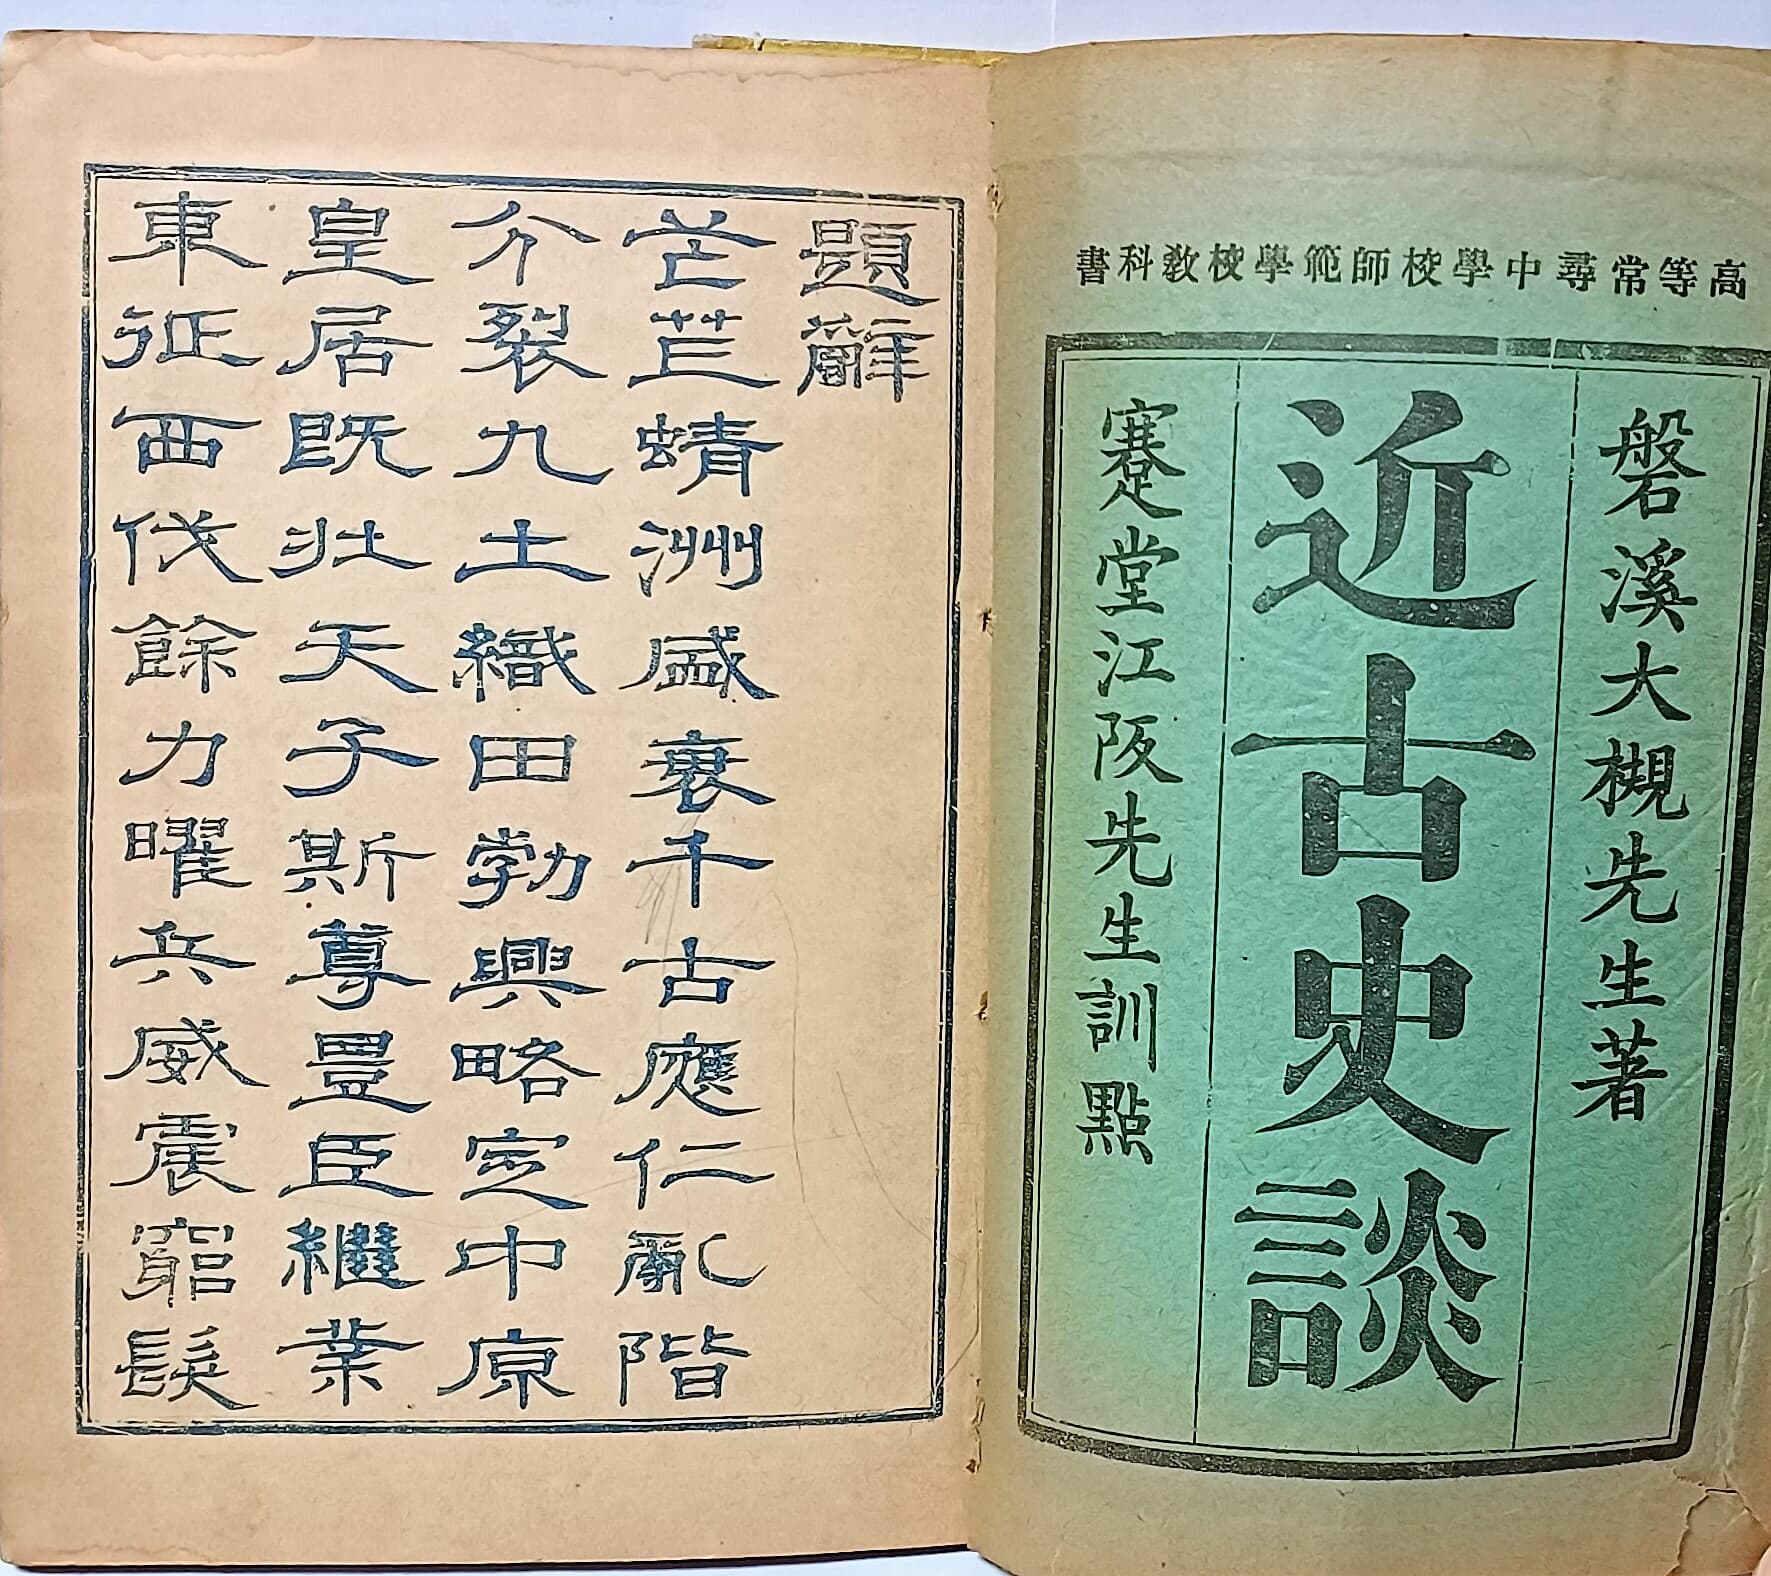 高等常尋中學校師範學校教科書
磐溪大槻先生著
近古史談
蹇堂江阪先生訓點
題辭
芒芒蜻洲盛衰千古應仁亂階
分裂九土織田勃興略定中原
皇居既壯天子斯尊豊臣繼業
東征西伐餘力曜兵威震窮髮